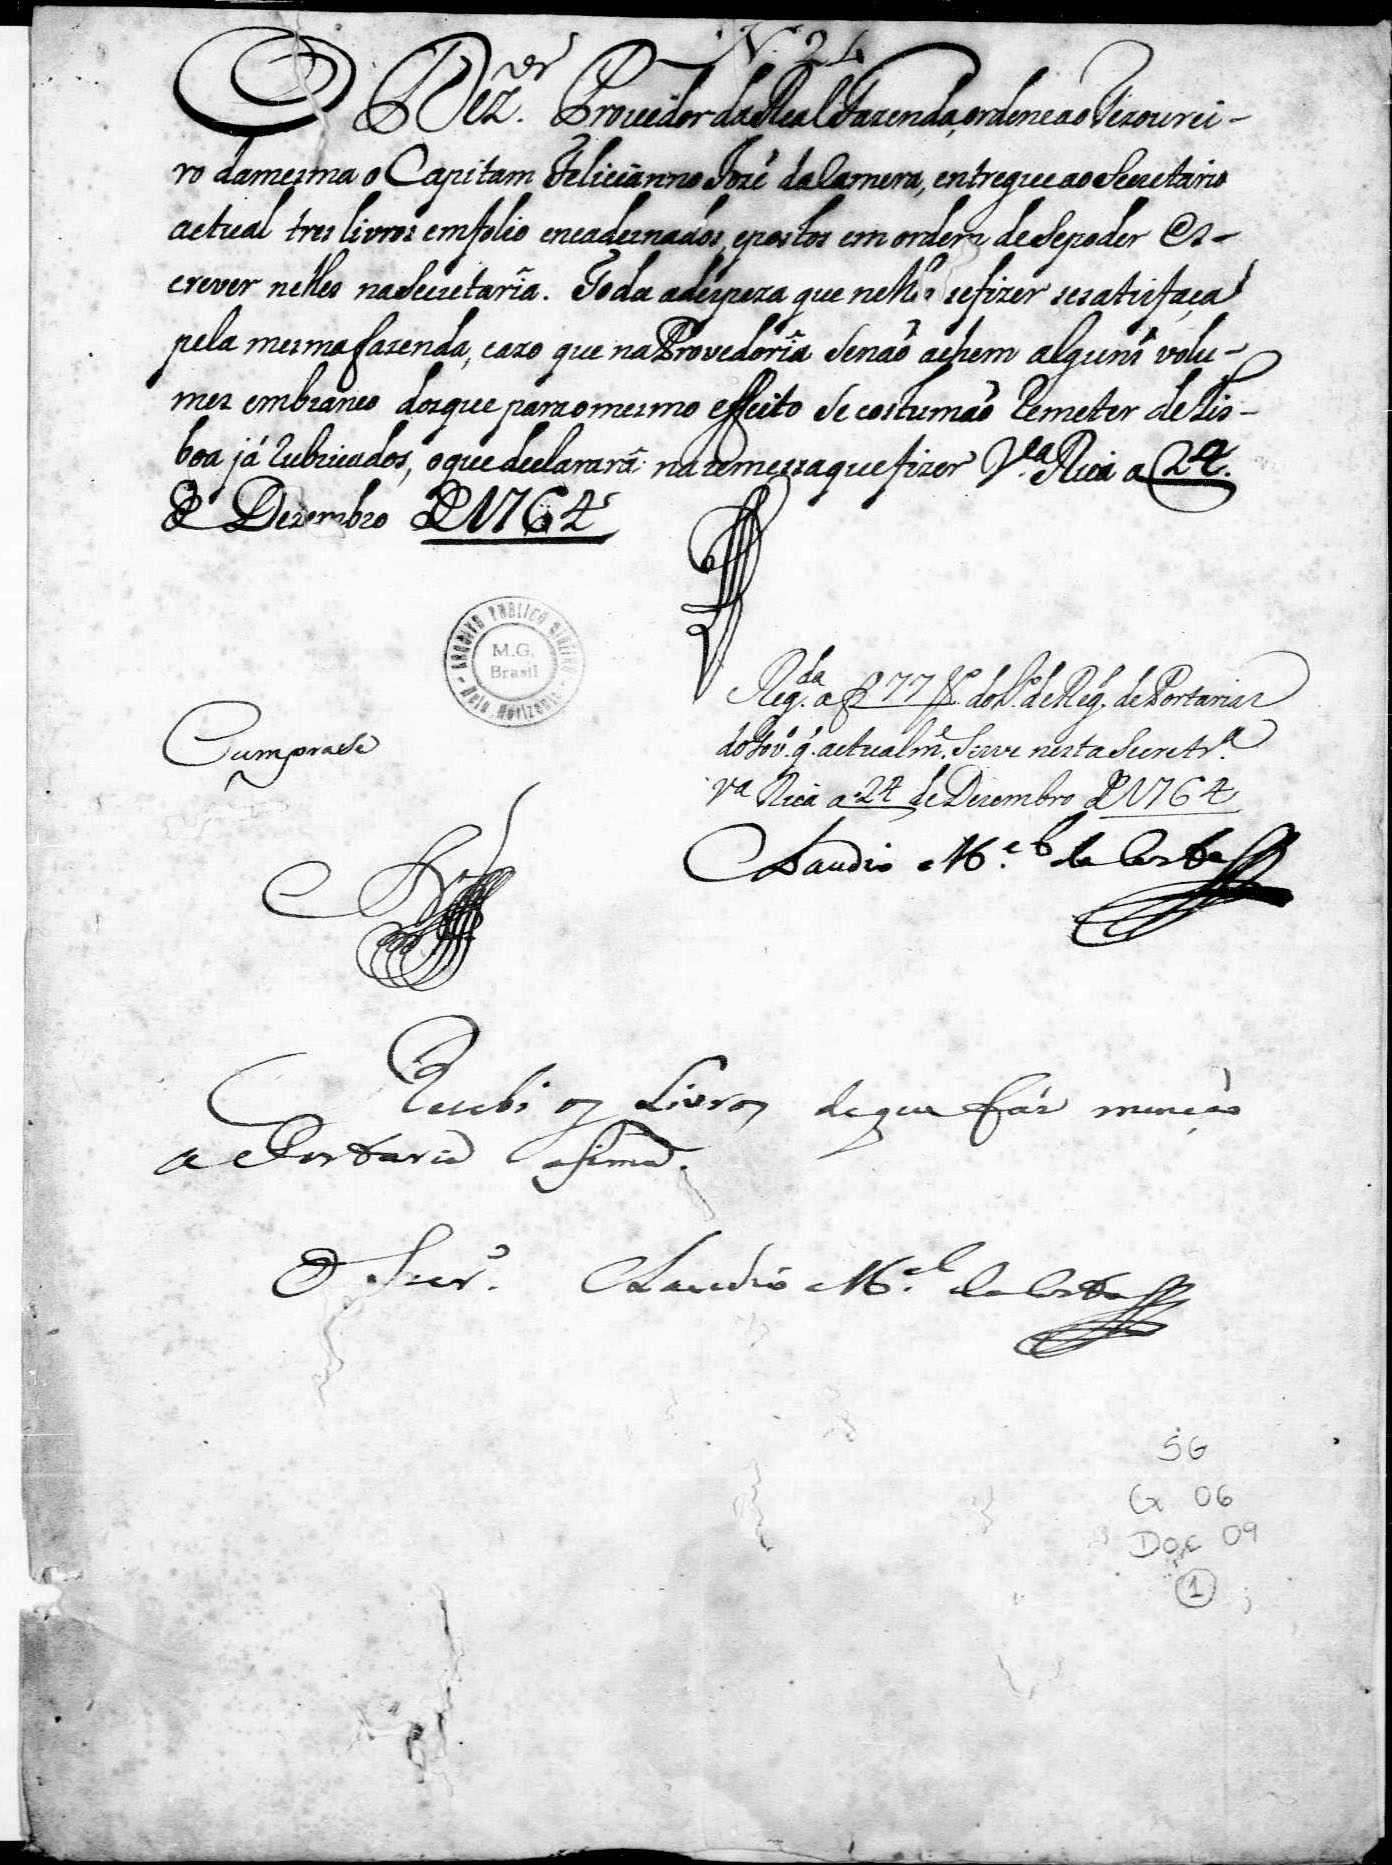 N. 24
O Dez.or Provedor da Real Fazenda, ordene ao Tezourei-
ro da mesma o Capitam Feliciànno José da Camera, entregue ao Secretario
actual tres livros em folio encadernados, e postos em ordem de se poder Es-
crever nelles na Secretaria. Toda a despeza que nelles se fizer se satisfaça
pela mesma fazenda, cazo que na Provedoria se não achem alguns volu-
mes em branco dos que para o mesmo effeito se costumão Remeter de Lis-
boa já Rubricados, o que declarará na remessa que fizer V.a Rica a 24.
de Dezembro de 1764
ARQUIVO PUBLICO MINEIRO
M.G.
Brasil
- Belo Horizonte -
Reg.da a f 77 v.o do L.o de Reg. de Portarias
do Gov.o q. actualm.e Serve nesta Secretr.a
V.a Rica a 24 de Dezembro de 1764
Claudio M.el da Costa
Cumprase
Recebi os Livros de que fás menção
a Portaria asima.
O Secr.o Claudio M.el da Costa
SG
Cx 06
Doc 09
1